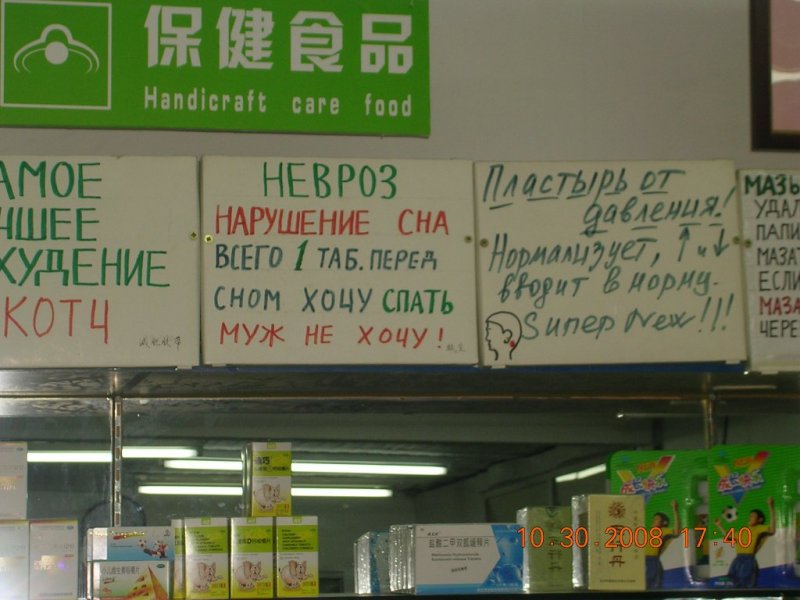 保健食品
Handicraft care food
АМОЕ
ЧШЕЕ
ХУДЕНИЕ
КОТЧ
НЕВРОЗ
НАРУШЕНИЕ СНА
ВСЕГО 1 ТАБ. ПЕРЕД
СНОМ ХОЧУ СПАТЬ
МУЖ НЕ ХОЧУ!
Пластырь от
давления!
Нормализует, ↑ и ↓
вводит в норму.
Super New!!!
МАЗЬ
УДАЛ
ПАПИ
МАЗАТ
ЕСЛИ
МАЗА
ЧЕРЕ
盐酸二甲双胍缓释片
NEW
NEW
10.30.2008 17:40